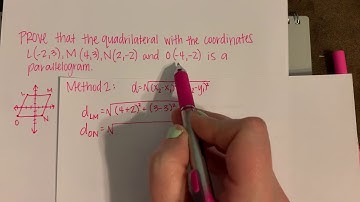 PROVE that the quadrilateral with the coordinates
L(-2,3), M(4,3), N(2,-2) and O(-4,-2) is a
parallelogram.
L M
O N
Method 2: d=√(x₂-x
-y₁)²
d_LM=√(4+2)²+(3-3)²
d_ON=√